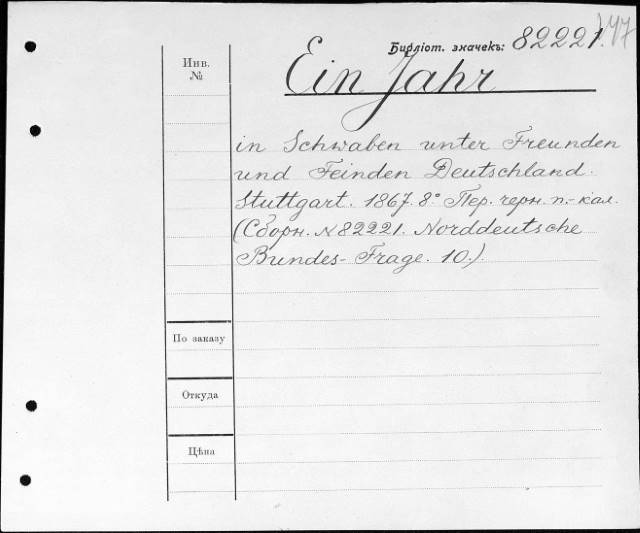 Библіот. значекъ: 82221.
147
Инв.
№
Ein Jahr
in Schwaben unter Freunden
und Feinden Deutschland.
Stuttgart. 1867. 8° Пер. черн. п.-кал.
(Сборн. №82221. Norddeutsche
Bundes-Frage. 10.)
По заказу
Откуда
Цѣна